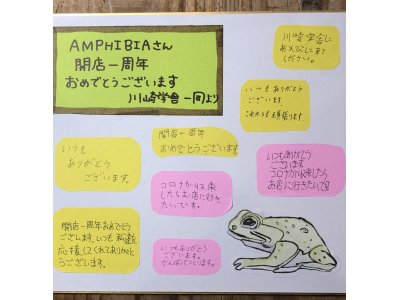 AMPHIBIAさん
開店一周年
おめでとうございます
川崎学舎一同より
川崎学舎に
あそびに来て
ください。
いつもありがとう
ございます
これからも頑張ります
いつも
ありがとう
ございます。
開店一周年
おめでとうございます。
いつもありがとう
ございます
コロナが収束したら
お店に行きたいです
コロナが収束
したらお店に行き
たいです。
開店一周年おめでとう
ございます。いつも私達を
応援してくれてありがと
うございます。
いつもありがとう
ございます。
がんばってつくります。